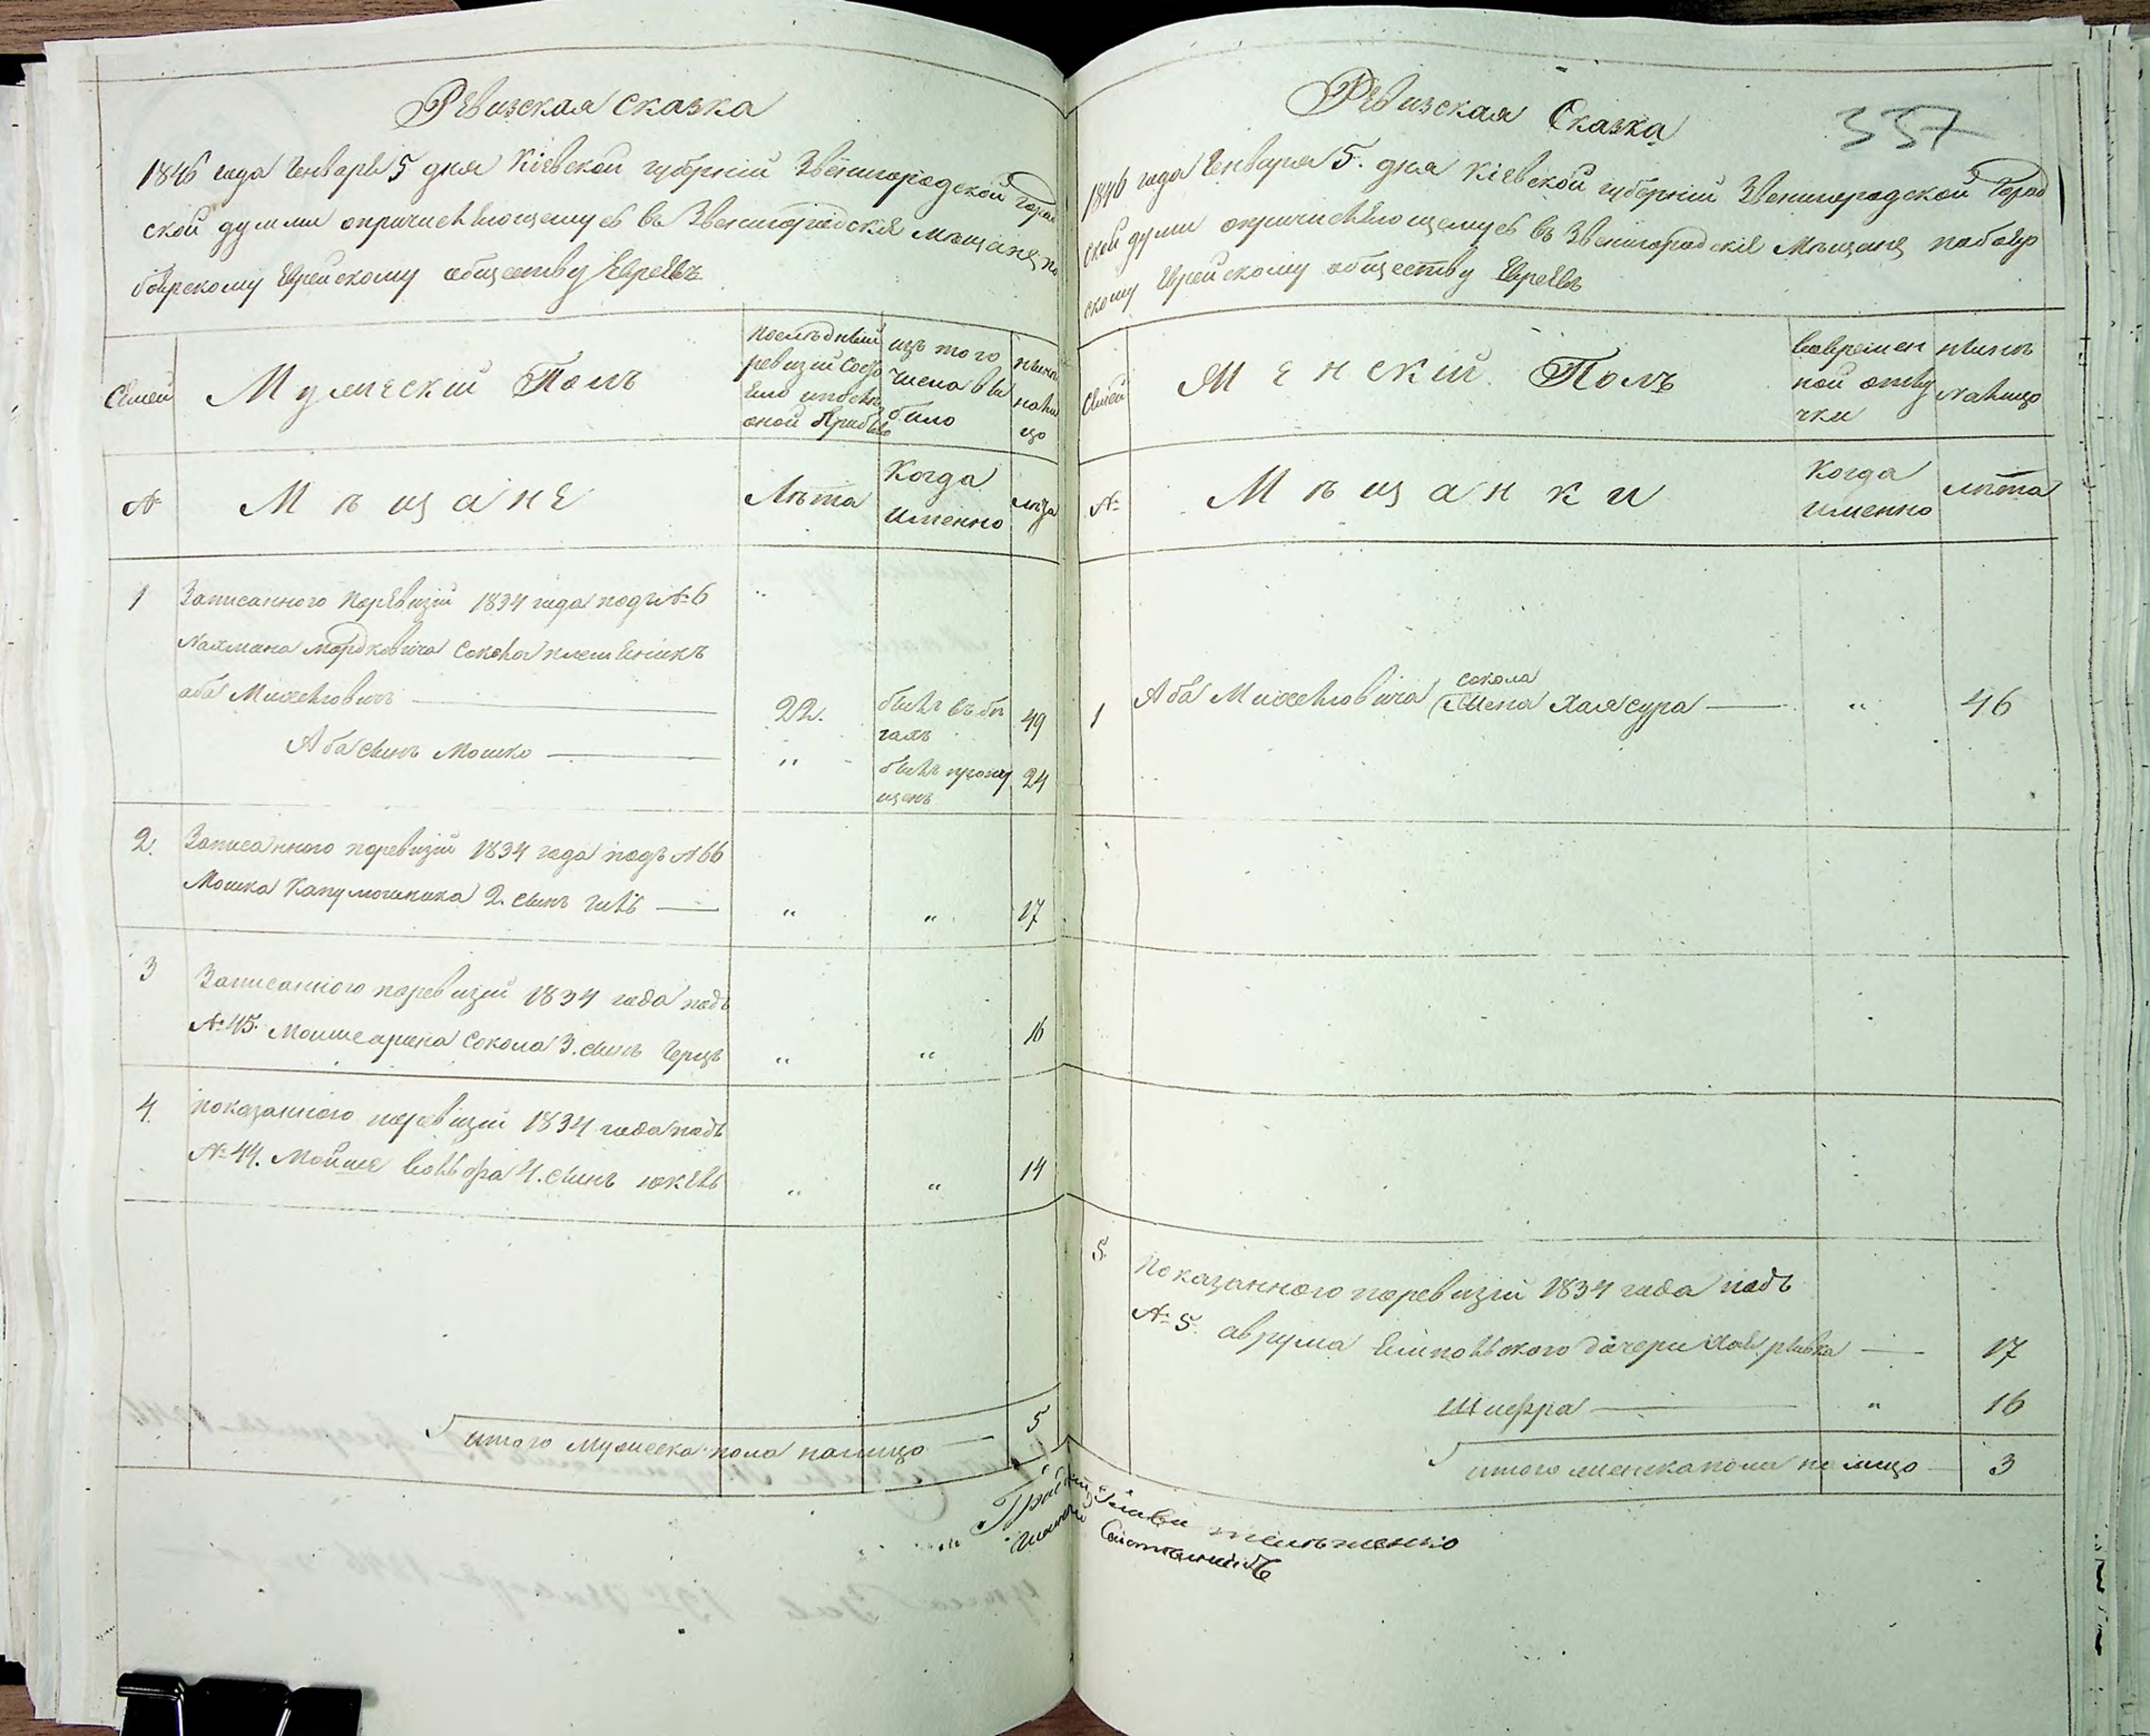 Ревизская сказка
1846 года Генваря 5 дня Кіевской губерніи Звенигородской Город
ской думи о причисляющемуся въ Звенигородскіе мъщане по
боярскому Еврейскому обществу Евреевъ
Семей
Мужескій Полъ
последней
ревизіи Состо
яло
оной прибыло
изъ того
числа вы
было
ныне
нали
цо
№
Мъщане
Лъта
Когда
именно
лъта
1
Записанного по ревизіи 1834 года подъ №6
Нахмана Мордковича Сокола племеникъ
аба Михелович
22.
былъ въ бъ
гахъ
49
Аба сынъ Мошко
"
былъ пропу
щенъ
24
2.
Записанного по ревизіи 1834 года подъ №66
Мошка 2. сынъ
"
"
17
3
Записанного по ревизіи 1834 года подъ
№45. Сокола 3. сынъ Герцъ
"
"
16
4.
показанного по ревизіи 1834 года подъ
№44. Мойше Вольфа 4. сынъ юкель
"
"
14
итого мужеска пола налицо
5
Ревизская Сказка
337
1846 года Генваря 5. дня Кіевской губерніи Звенигородской Город
ской думи о причисляющемуся въ Звенигородскіе Мъщане по бояр
скому Еврейскому обществу Евреевъ
Семей
Женскій Полъ
Вовремен
ной отлу
чки
нынъ
налицо
№
Мъщанки
Когда
именно
лъта
сокола
1
Аба Михеловича жена Хаясура
"
46
5.
Показанного по ревизіи 1834 года подъ
№ 5. аврума дочери Хае рывка
17
Шифра
"
16
итого женска пола на лицо
3